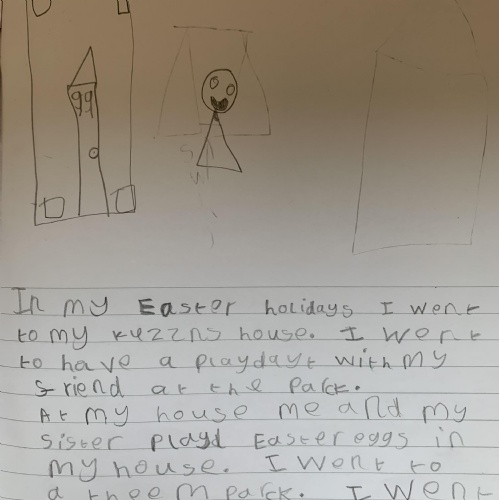 99
In my Easter holidays I went
to my kuzzns house. I went
to have a playdayt with my
friend at the Park.
At my house me and my
sister playd Easter eggs in
my house. I went to
a theem park. I went